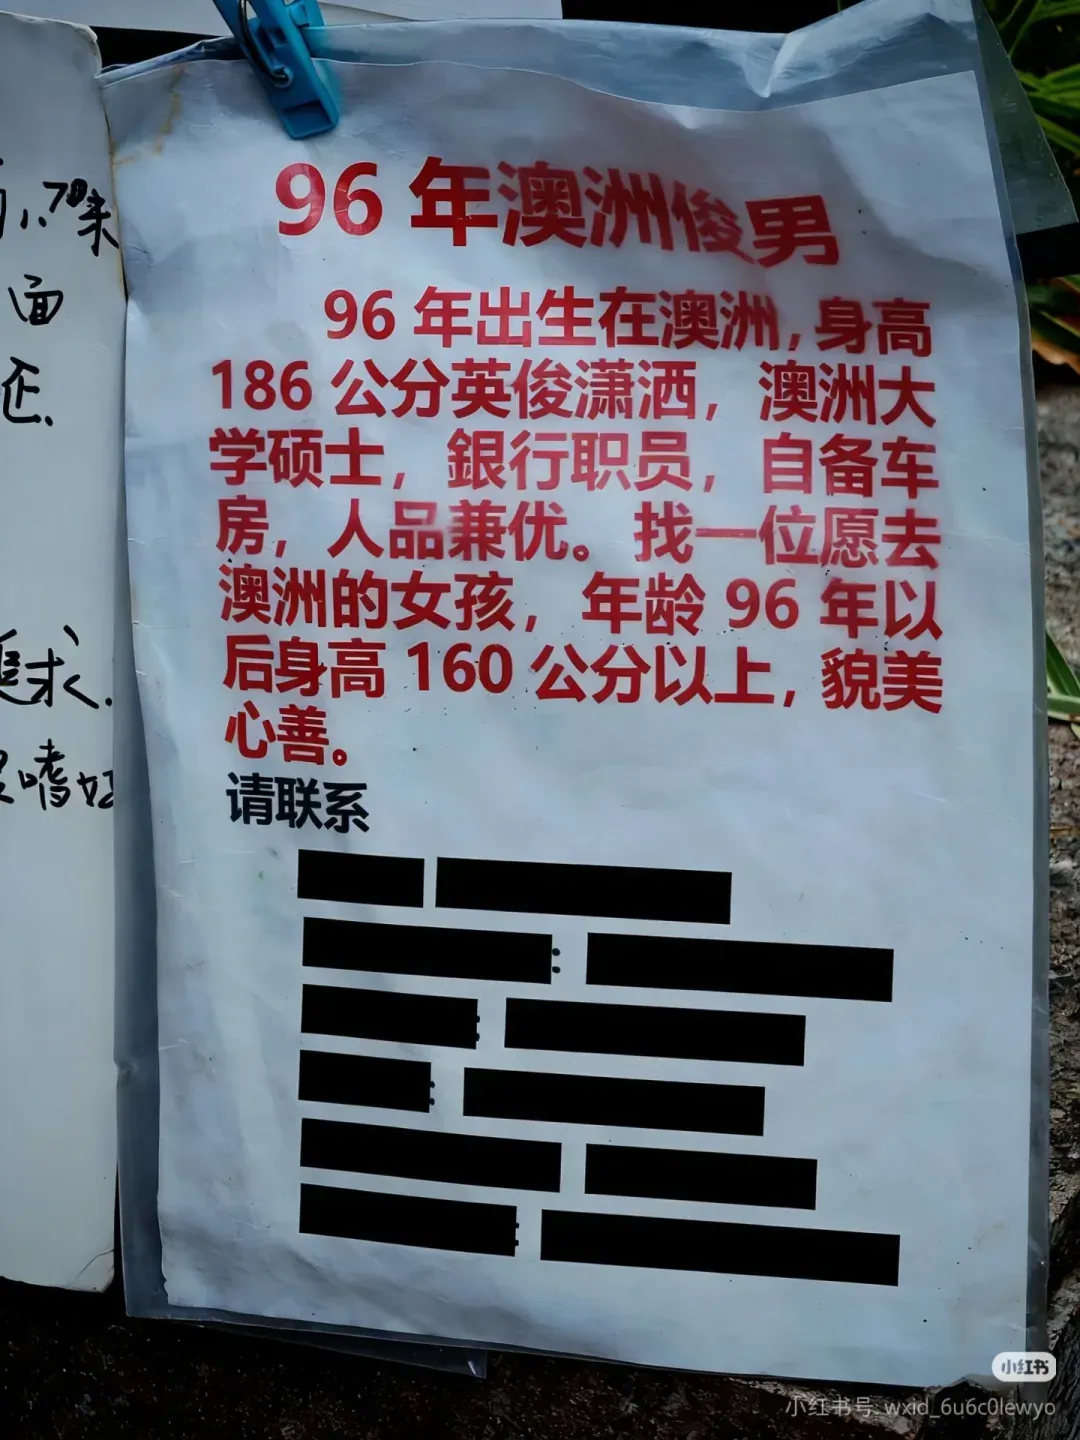 96 年澳洲俊男
96 年出生在澳洲，身高
186 公分英俊潇洒，澳洲大
学硕士，銀行职员，自备车
房，人品兼优。找一位愿去
澳洲的女孩，年龄 96 年以
后身高 160 公分以上，貌美
心善。
请联系
面
追求.
嗜好
小红书
小红书号 wxid_6u6c0lewyo